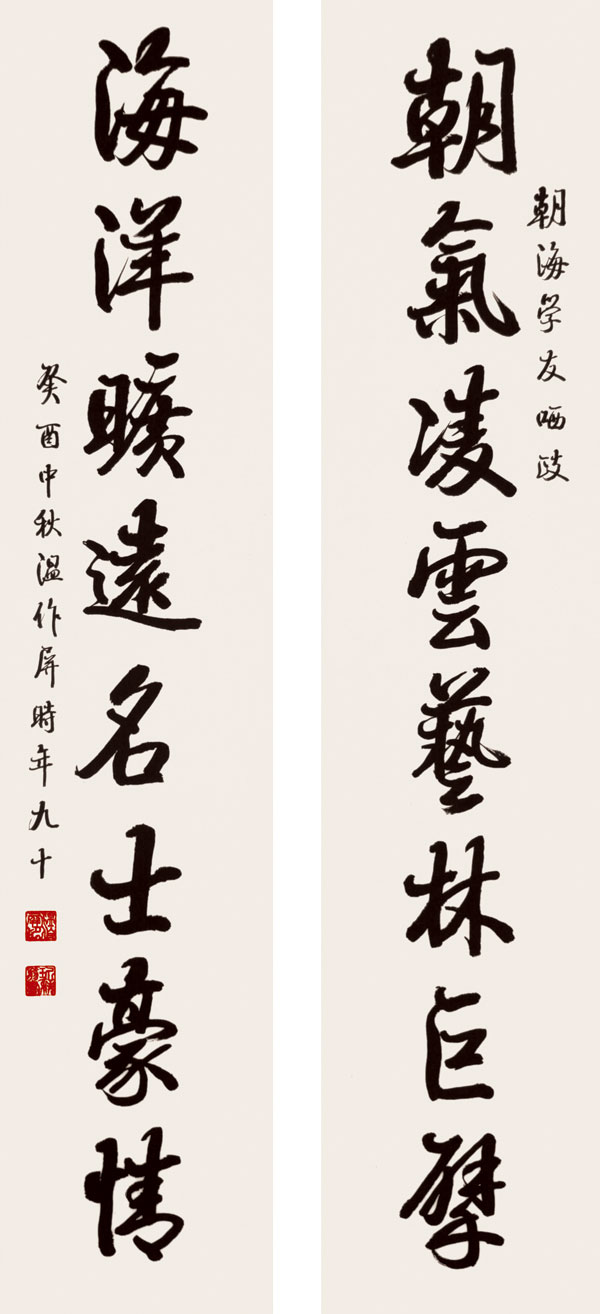 朝海学友哂政
朝氣凌雲藝林巨擘
海洋曠遠名士豪情
癸酉中秋温作屏時年九十